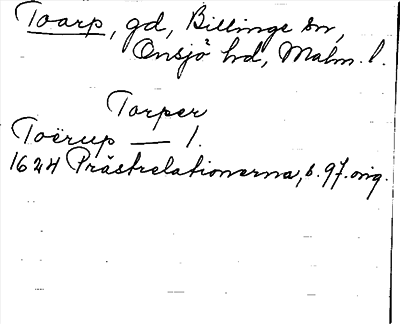 Toarp, gd, Billinge sn,
Onsjö hd, Malm. l.
Torper
Toërup — 1.
1624 Prästrelationerna, s. 97. orig.